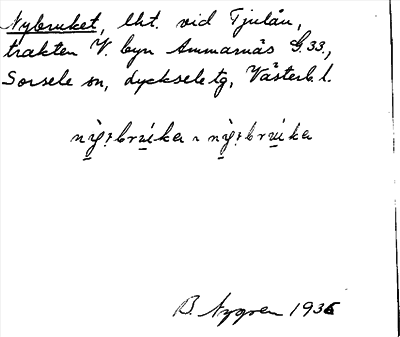 Nybruket, lht. vid Tjulån,
trakten V. byn Ammarnäs G. 33.,
Sorsele sn, Lycksele tg, Västerb. l.
B. Nygren 1936